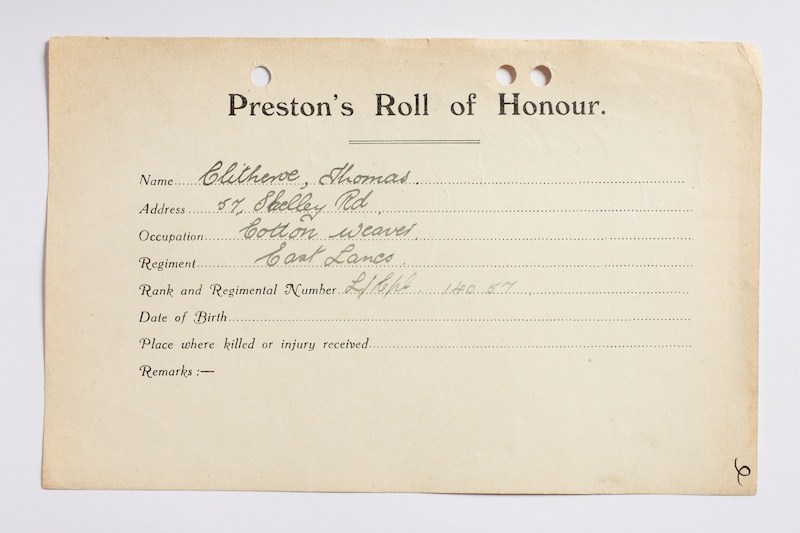 Preston's Roll of Honour.
Name Clitheroe, Thomas.
Address 57, Shelley Rd.
Occupation Cotton weaver.
Regiment East Lancs.
Rank and Regimental Number L/Cpl. 14057
Date of Birth
Place where killed or injury received
Remarks :—